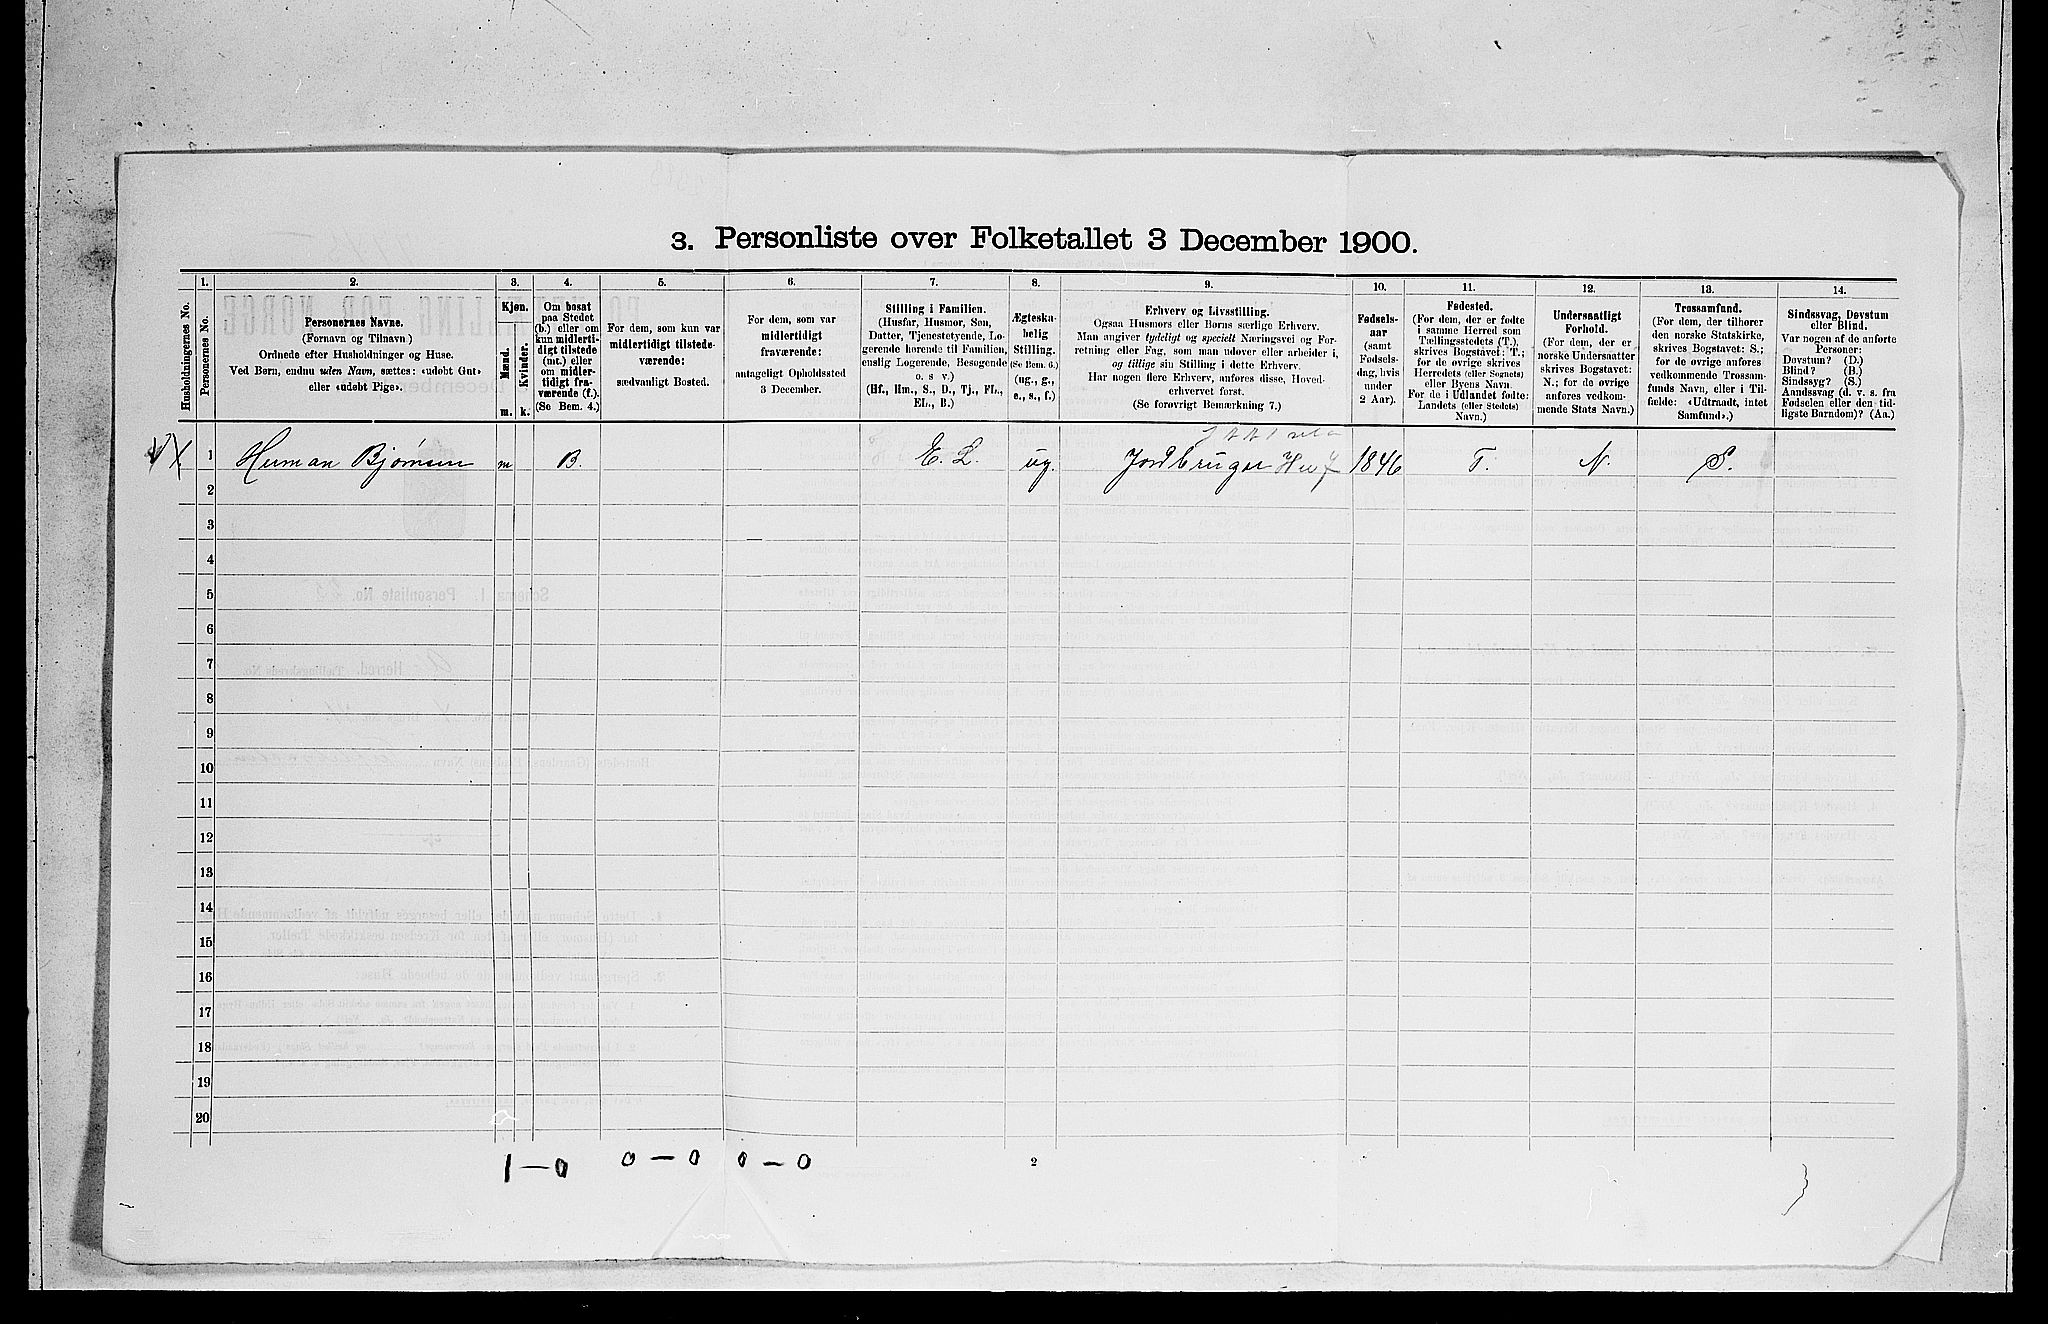 3. Personliste over Folketallet 3 December 1900.
Husholdningernes No.
1.
Personernes No.
2.
Personernes Navne.
(Fornavn og Tilnavn)
Ordnede efter Husholdninger og Huse.
Ved Børn, endnu uden Navn, sættes: «udøbt Gut»
eller «udøbt Pige».
3.
Kjøn.
Mænd.
Kvinder.
m.
k.
4.
Om bosat
paa Stedet
(b.) eller om
kun midlerti-
digt tilstede
(mt.) eller
om midler-
tidigt fra-
værende (f.).
(Se Bem. 4.)
5.
For dem, som kun var
midlertidigt tilstede-
værende:
sædvanligt Bosted.
6.
For dem, som var
midlertidigt
fraværende:
antageligt Opholdssted
3 December.
7.
Stilling i Familien.
(Husfar, Husmor, Søn,
Datter, Tjenestetyende, Lo-
gerende hørende til Familien,
enslig Logerende, Besøgende
o. s v.)
(Hf., Hm., S., D., Tj., FL.,
EL., B.)
8.
Ægteska-
belig
Stilling.
(Se Bem. 6.)
(ug., g.,
e., s., f.)
9.
Erhverv og Livsstilling.
Ogsaa Husmors eller Børns særlige Erhverv.
Man angiver tydeligt og specielt Næringsvei og For-
retning eller Fag, som man udøver eller arbeider i,
og tillige sin Stilling i dette Erhverv.
Har nogen flere Erhverv, anføres disse, Hoved-
erhvervet først.
(Se forøvrigt Bemærkning 7.)
10.
Fødsels-
aar
(samt
Fødsels-
dag, hvis
under
2 Aar).
11.
Fødested.
(For dem, der er fødte
i samme Herred som
Tællingsstedets (T.),
skrives Bogstavet: T.;
for de øvrige skrives
Herredets (eller Sognets)
eller Byens Navn.
For de i Udlandet fødte:
Landets (eller Stedets)
Navn.)
12.
Undersaatligt
Forhold.
(For dem, der er
norske Undersaatter
skrives Bogstavet:
N.; for de øvrige
anføres vedkom-
mende Stats Navn.)
13.
Trossamfund.
(For dem, der tilhører
den norske Statskirke,
skrives Bogstavet: S.;
for de øvrige anføres
vedkommende Trossam-
funds Navn, eller i Til-
fælde: «Udtraadt, intet
Samfund».)
14.
Sindssvag, Døvstum
eller Blind.
Var nogen af de anførte
Personer:
Døvstum? (D.)
Blind? (B.)
Sindssyg? (S.)
Aandssvag (d. v. s. fra
Fødselen eller den tid-
ligste Barndom)? (Aa.)
1 Herman Bjørnsen m B. E. L. ug. Jordbruger 1846 T. N. S.
2
3
4
5
6
7
8
9
10
11
12
13
14
15
16
17
18
19
20
1 — 0 0 — 0 0 — 0
2